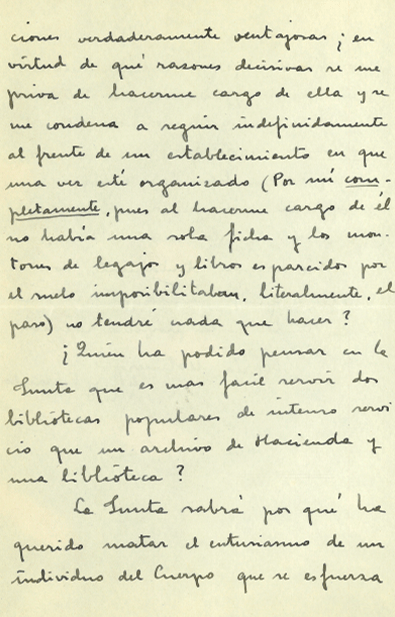 ciones verdaderamente ventajosas; en
virtud de qué razones decisivas se me
priva de hacerme cargo de ella y se
me condena a seguir indefinidamente
al frente de un establecimiento en que
una vez esté organizado (Por mí com-
pletamente, pues al hacerme cargo de él
no había una sola ficha y los mon-
tones de legajos y libros esparcidos por
el suelo imposibilitaban, literalmente, el
paso) no tendré nada que hacer?
¿Quién ha podido pensar en la
Junta que es mas facil servir dos
bibliotecas populares de intenso servi
cio que un archivo de Hacienda y
una biblioteca?
La Junta sabrá por qué ha
querido matar el entusiasmo de un
individuo del Cuerpo que se esfuerza